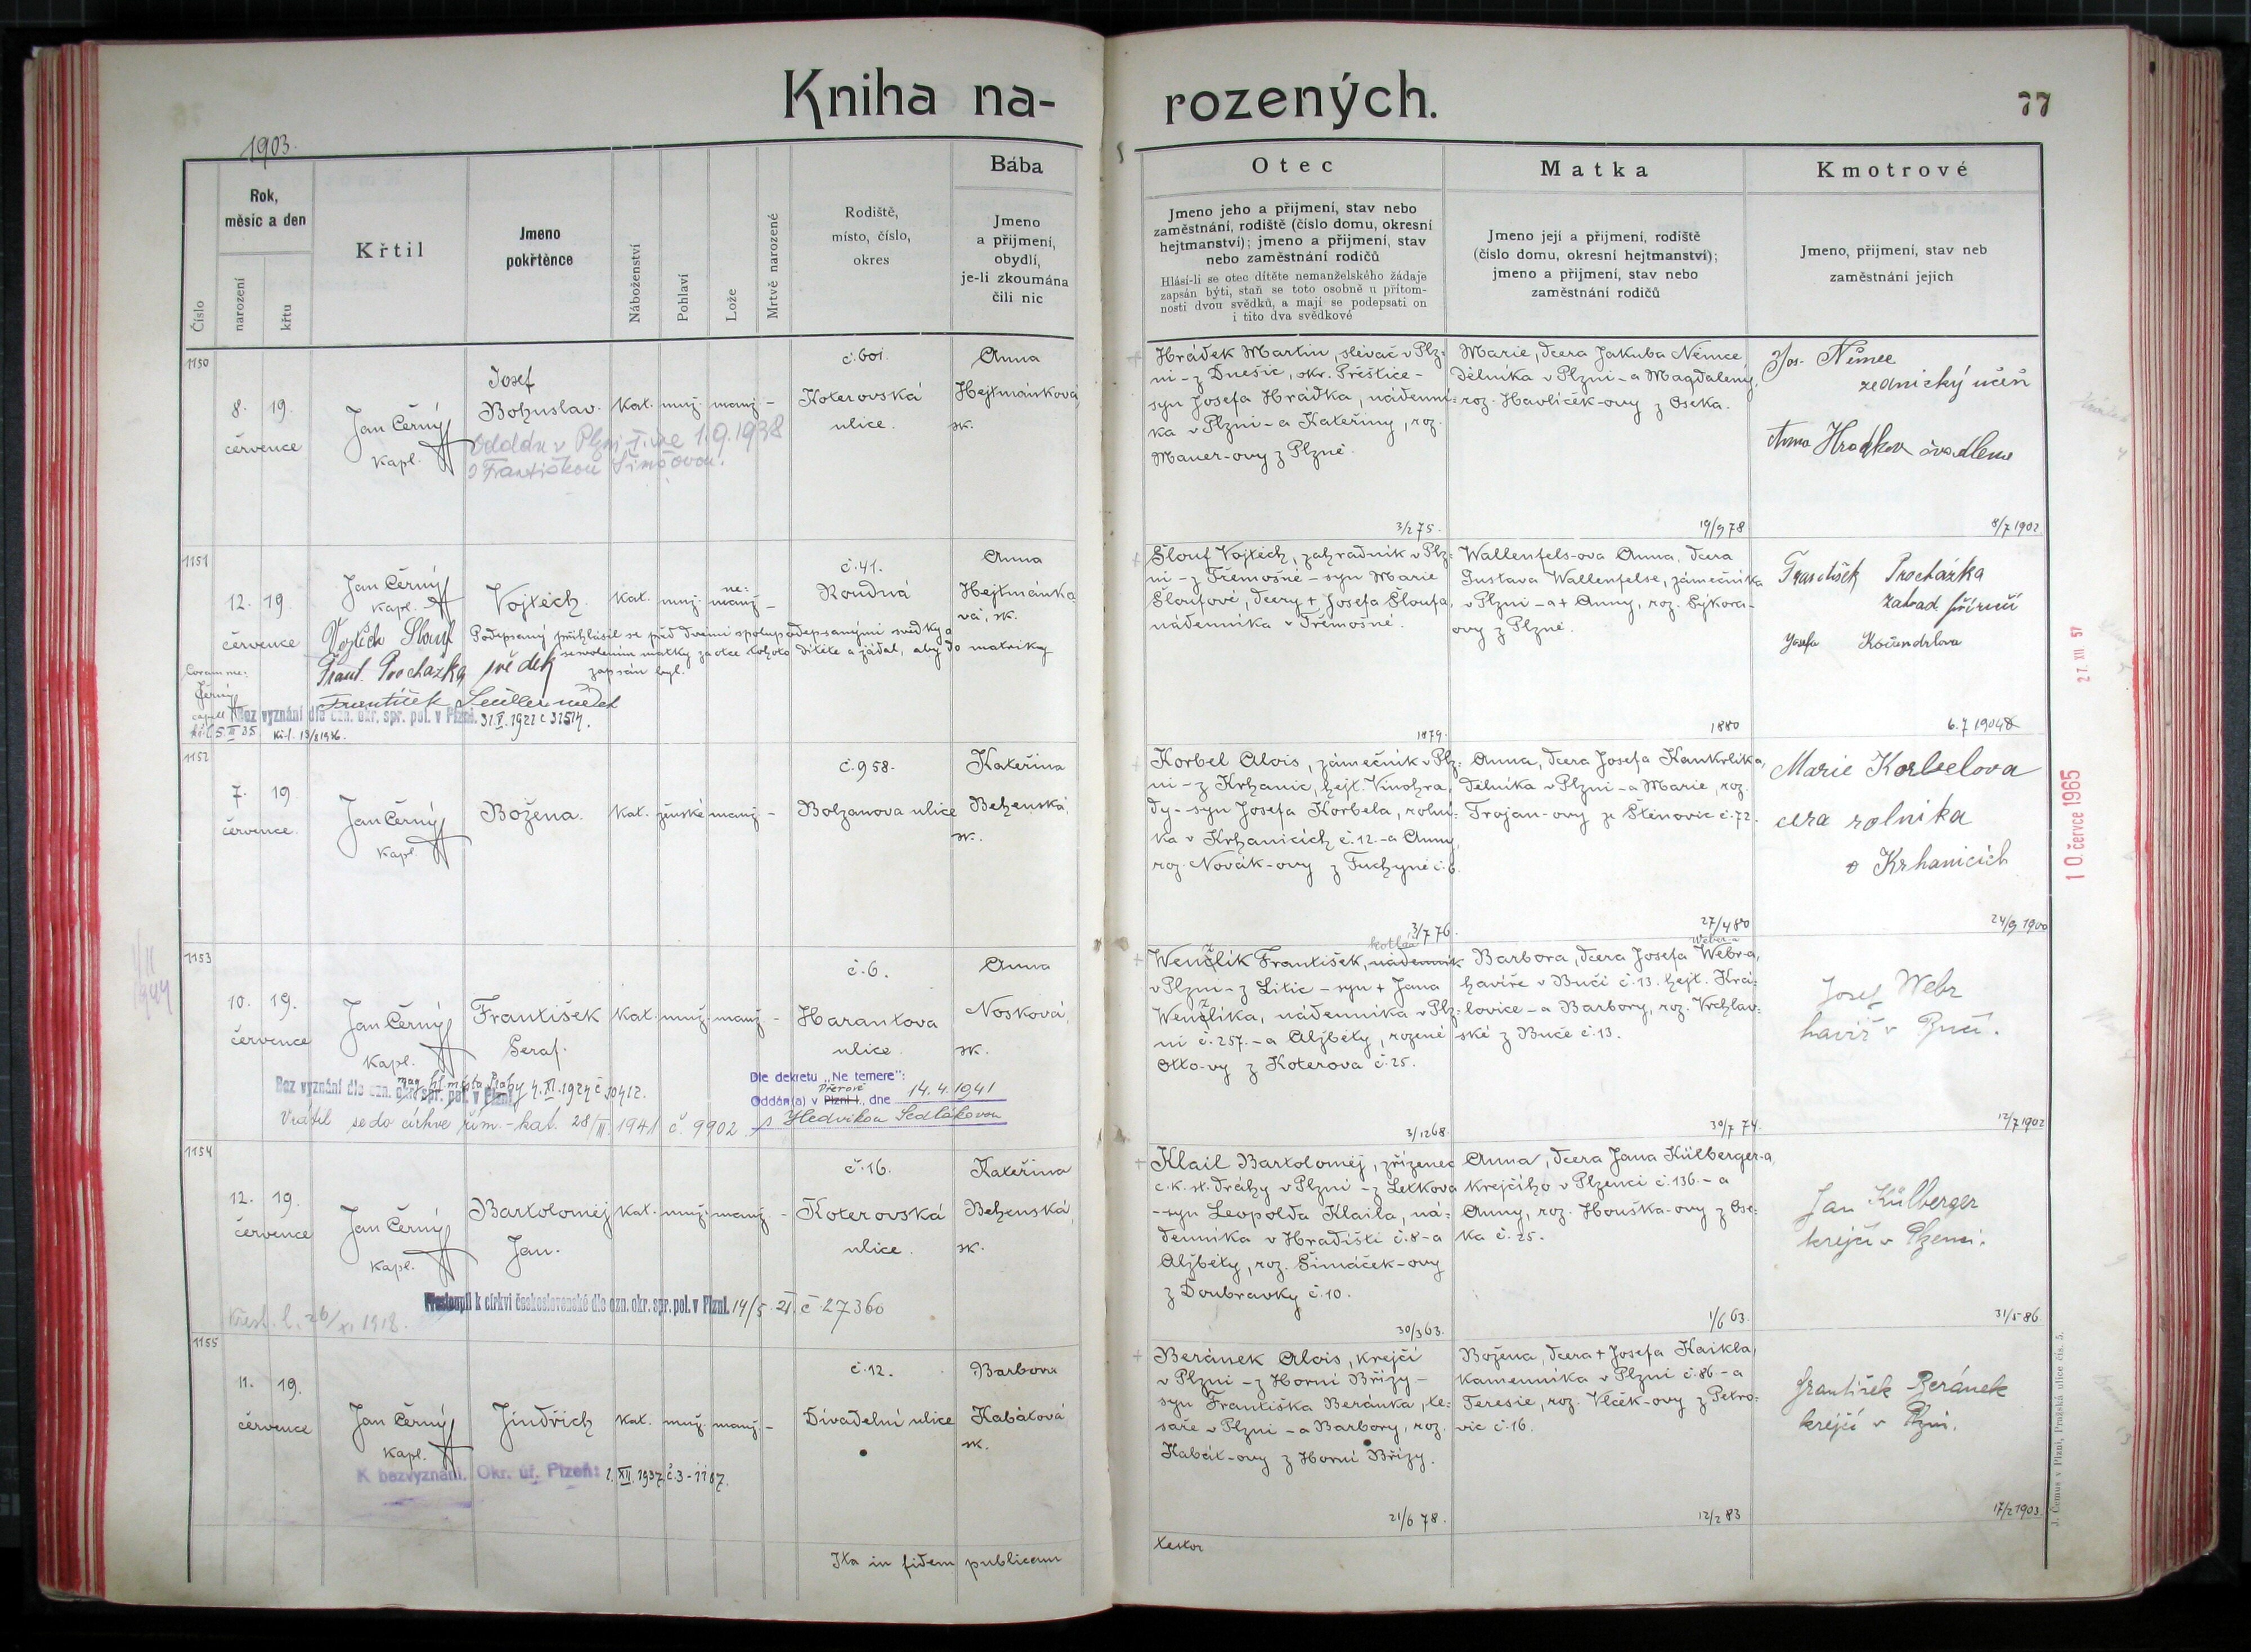 Kniha na-
rozených.
77
1903.
Číslo
Rok,
měsíc a den
narození
křtu
Křtil
Jmeno
pokřtěnce
Náboženství
Pohlaví
Lože
Mrtvě narozené
Rodiště,
místo, číslo,
okres
Bába
Jmeno
a přijmení,
obydlí,
je-li zkoumána
čili nic
Otec
Jmeno jeho a přijmení, stav nebo
zaměstnání, rodiště (číslo domu, okresní
hejtmanství); jmeno a přijmení, stav
nebo zaměstnání rodičů
Hlásí-li se otec dítěte nemanželského žádaje
zapsán býti, staň se toto osobně u přítom-
nosti dvou svědků, a mají se podepsati on
i tito dva svědkové
Matka
Jmeno její a přijmení, rodiště
(číslo domu, okresní hejtmanství);
jmeno a přijmení, stav nebo
zaměstnání rodičů
Kmotrové
Jmeno, přijmení, stav neb
zaměstnání jejich
1150
8. 19.
července
Jan Černý
kapl.
Josef
Bohuslav.
kat. muž. manž. -
Oddán v Plzni dne 1.9.1938
s Františkou Šimáčovou.
č. 601.
Koterovská
ulice.
Anna
Hejtmánková,
zk.
Hrádek Martin, slévač v Plz-
ni - z Dnešic, okr. Přeštice -
syn Josefa Hrádka, nádenní-
ka v Plzni - a Kateřiny, roz.
Mauer-ovy z Plzně.
3/2 75.
Marie, dcera Jakuba Němce
dělníka v Plzni - a Magdaleny,
roz. Havlíček-ovy z Oseka.
19/9 78
Jos. Němec
zednický učeň
Anna Hradkov švadlena
8/7 1902
1151
12. 19.
července
Jan Černý
kapl.
Vojtěch
kat. muž. ne-
manž. -
č. 41.
Roudná
Anna
Hejtmánko-
vá, zk.
Vojtěch Slouf
Podepsaný přihlásil se před dvěma spolupodepsanými svědky a
se svolením matky za otce tohoto dítěte a žádal, aby do matriky
zapsán byl.
Frant. Prochazka svědek
František
Coram me:
Černý
capell
Bez vyznání dle ozn. okr. spr. pol. v Plzni. 31.V.1921 č 31514.
Slouf Vojtěch, zahradník v Plz-
ni - z Třemošné - syn Marie
Sloufové, dcery + Josefa Sloufa,
nádenníka v Třemošné.
1879.
Wallenfels-ova Anna, dcera
Gustava Wallenfelse, zámečníka
v Plzni - a + Anny, roz. Sýkora-
ovy z Plzně.
1880
František Procházka
zahrad. příručí
Josefa Kočandrlova
6.7 1904
27. XII. 57
1152
7. 19.
července.
Jan Černý
kapl.
Božena.
kat. ženské manž. -
č. 958.
Bolzanova ulice
Kateřina
Behenská,
zk.
Korbel Alois, zámečník v Plz-
ni - z Krhanic, hejt. Vinohra-
dy - syn Josefa Korbela, rolní-
ka v Krhanicích č. 12. - a Anny,
roz. Novák-ovy z Tuchyně č. 6.
3/7 76.
Anna, dcera Josefa Kankrlíka,
dělníka v Plzni - a Marie, roz.
Trojan-ovy ze Štěnovic č. 72.
27/4 80
Marie Korbelova
dcera rolnika
v Krhanicích
24/9 1900
10. července 1965
1153
10. 19.
července
Jan Černý
kapl.
František
Seraf.
kat. muž. manž. -
č. 6.
Harantova
ulice.
Anna
Nosková,
zk.
Bez vyznání dle ozn. mag. hl. města Prahy 4.XI.1924 č 50412.
okr. spr. pol. v Plzni
Vrátil se do církve řím.-kat. 28/II. 1941 č. 9902.
Dle dekretu „Ne temere":
Přerově
Oddán(a) v Plzni I., dne 14.4.1941
s Hedvikou Sedlákovou
Wenzlík František, nádenník
v Plzni - z Litic - syn + Jana
Wenzlíka, nádenníka v Plz-
ni č. 257. - a Alžběty, rozené
Otto-vy z Koterova č. 25.
3/12 68.
Barbora, dcera Josefa Webra,
havíře v Buči č. 13. hejt. Kra-
lovice - a Barbory, roz. Vrchlav-
ské z Buče č. 13.
30/7 74.
Josef Webr
havíř v Buči.
12/7 1902
1154
12. 19.
července
Jan Černý
kapl.
Bartoloměj
Jan.
kat. muž. manž. -
č. 16.
Koterovská
ulice.
Kateřina
Behenská,
zk.
Přestoupil k církvi československé dle ozn. okr. spr. pol. v Plzni. 14/5. 21. č 27360
Křest. l. 26/XI 1918.
Klail Bartoloměj, zřízenec
c. k. st. dráhy v Plzni - z Letkova
- syn Leopolda Klaila, ná-
denníka v Hradišti č. 8 - a
Alžběty, roz. Šimáček-ovy
z Doubravky č. 10.
30/3 63.
Anna, dcera Jana Külberger-a,
krejčího v Plzenci č. 136. - a
Anny, roz. Houška-ovy z Ose-
ka č. 25.
1/6 63.
Jan Külberger
krejčí v Plzenci.
31/5 86.
1155
11. 19.
července
Jan Černý
kapl.
Jindřich
kat. muž. manž. -
č. 12.
Divadelní ulice
Barbora
Kabátová,
zk.
K bezvyznání. Okr. úř. Plzeň: 2. XII. 1937. č. 3-1187.
Beránek Alois, krejčí
v Plzni - z Horní Břízy -
syn Františka Beránka, te-
saře v Plzni - a Barbory, roz.
Kabát-ovy z Horní Břízy.
21/6 78.
Božena, dcera + Josefa Kaikla,
kameníka v Plzni č. 86 - a
Teresie, roz. Vlček-ovy z Petro-
vic č. 16.
12/2 83
František Beránek
krejčí v Plzni.
17/2 1903.
Ita in fidem publicam
testor
J. Čemus v Plzni, Pražská ulice čís. 5.